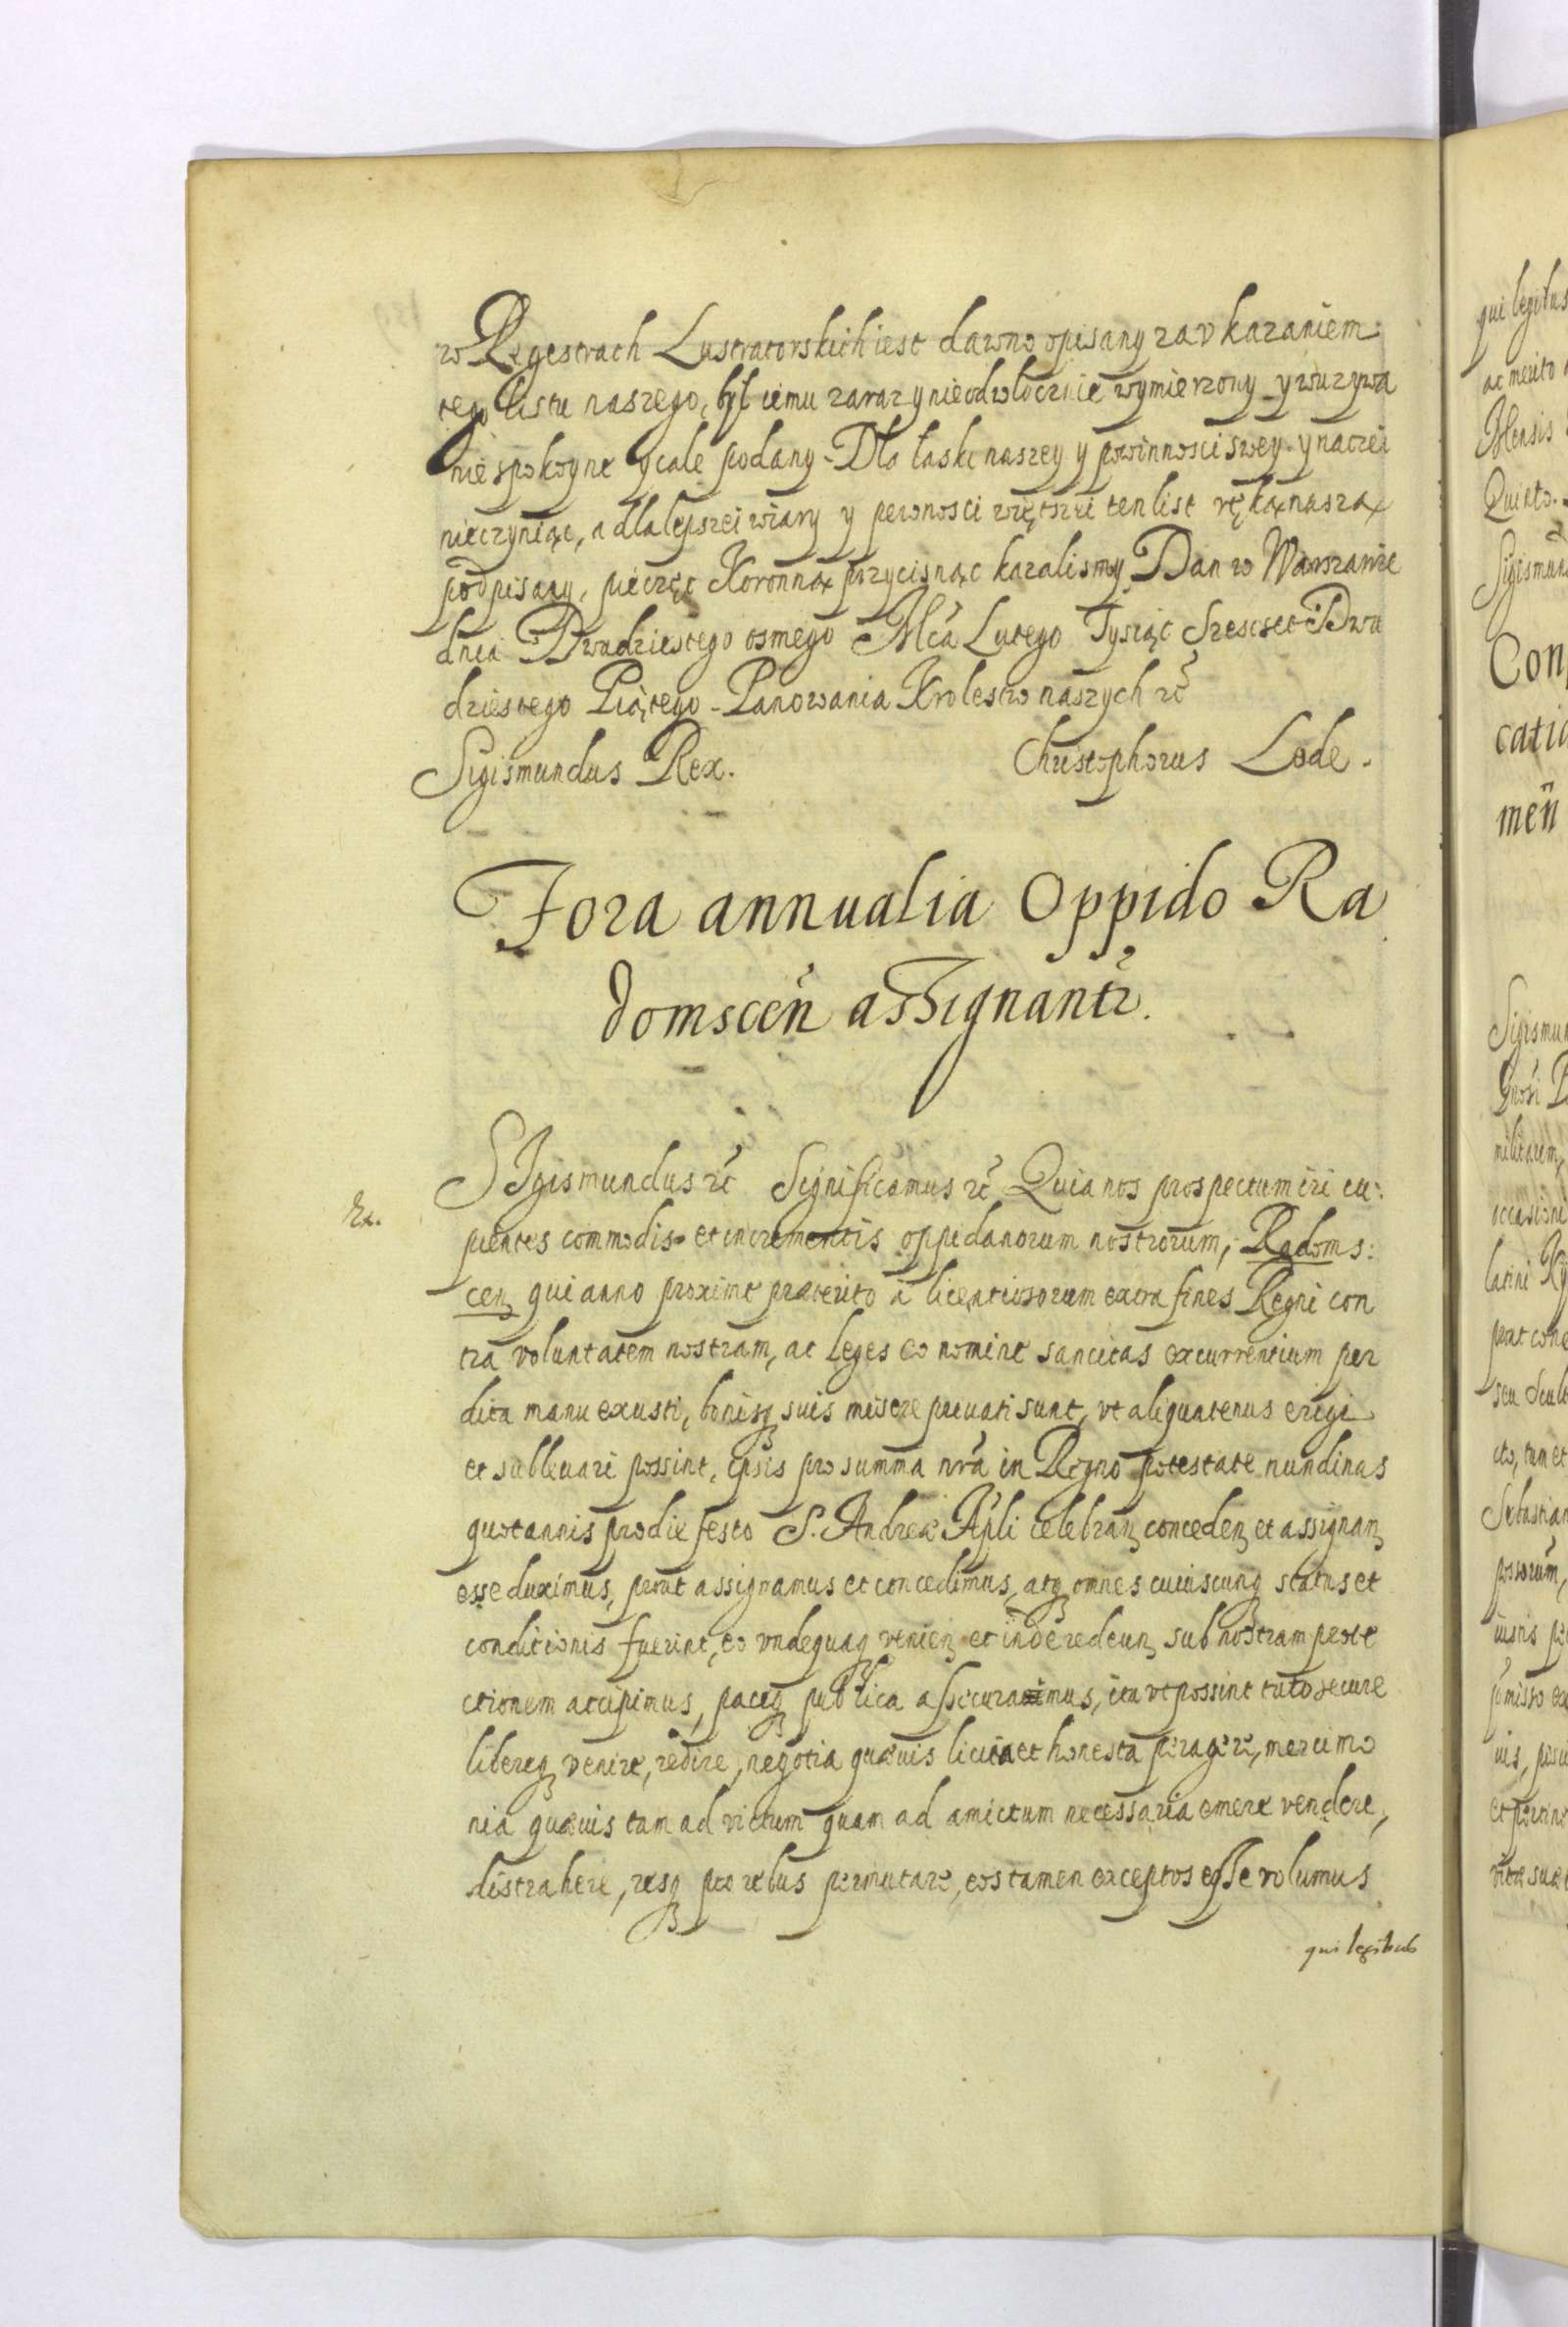 w Regestrach Lustratorskich iest dawno opisany za vkazaniem
tego listu naszego, był iemu zaraz y nieodwłocznie wymierzony y wuzywa
nie spokoyne y cale podany. Dla łaski naszey y powinnosci swey. ynaczei
nieczyniąc, a dla lepszei wiary y pewnosci więtszei ten list ręką naszą
podpisany, pieczęc Koronną przycisnąc kazalismy. Dan w Warszawie
dnia Dwudziestego osmego Mca Lutego Tysiąc Szescset Dwu
dziestego Piątego. Panowania Krolestw naszych rc̃
Sigismundus Rex. Christophorus Lode.
Fora annualia Oppido Ra
domscen̄ assignantr.
SIgismundus rc̃ Significamus rc̃ Quia nos prospectum iri cu:
pientes commodis et incrementis oppidanorum nostrorum, Radoms:
cen̄ qui anno proxime præterito à licentiosorum extra fines Regni con
tra voluntatem nostram, ac leges eo nomine sancitas excurrentium per
dita manu exusti, bonisq suis misere priuati sunt, vt aliquatenus erigi
et subleuari possint, ipsis pro summa nrã in Regno potestate nundinas
quotannis pro die festo S. Andreæ Apli celebran̄ conceden̄ et assignan̄
esse duximus, prout assignamus et concedimus, atq omnes cuiuscunq status et
conditionis fuerint, eo vndequaq venien̄ et inde redeun̄ sub nostram prote
ctionem accipimus, paceq publica assecuramus, ita vt possint tuto secure
libereq venire, redire, negotia quæuis licita et honesta peragere, mercimo
nia quæuis tam ad victum quam ad amictum necessaria emere vendere,
distrahere, resq pro rebus permutare, eos tamen exceptos esse volumus
qui legibus